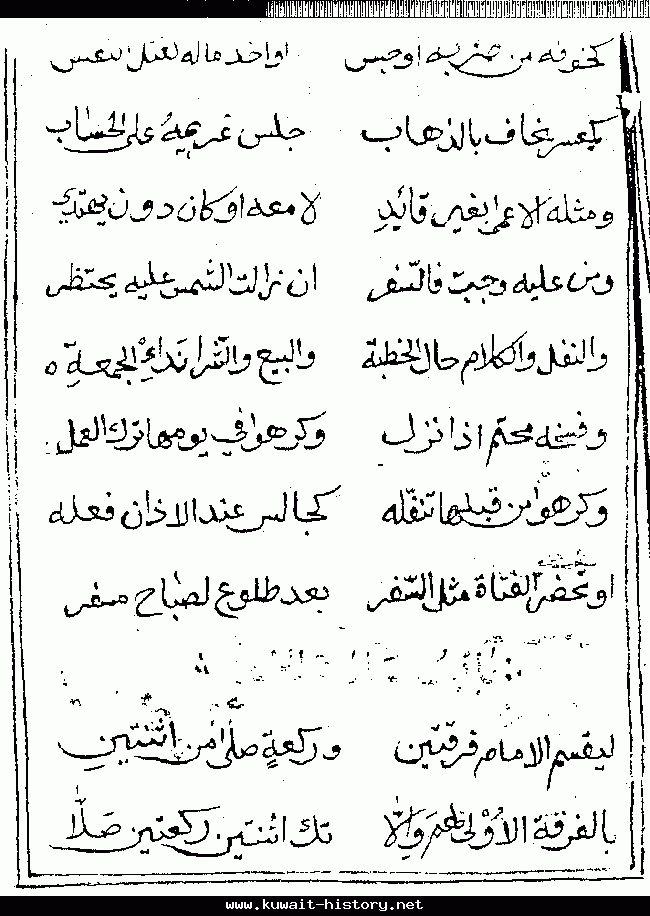 كخوفه من ضربه او حبس او اخذ ماله لقتل النفس
كمعسر يخاف بالذهاب جلس غريمه على الحساب
ومثله الاعمى بغير قائد لا معه او كان دون يهتدي
ومن عليه وجبت فالسفر ان زالت الشمس عليه يحتظر
والنفل والكلام حال الخطبة والبيع والشرا نداء الجمعة ه
وفسخه محتم اذا نزل وكرهوا في يومها ترك العمل
وكرهوا من قبلها تنفله كجالس عند الاذان فعله
او تحضر الفتاة مثل السفر بعد طلوع لصباح مسفر
ليقسم الامام فرقتين وركعة صلى من اثنتين
بالفرقة الاولى والا تك اثنتين ركعتين صلا
www.kuwait-history.net